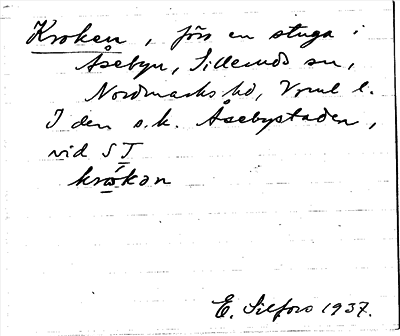 Kroken, förr en stuga i
Åsebyn, Silleruds sn,
Nordmarks hd, Vrml l.
I den s.k. Åsebystaden,
vid ST
krokan
E. Silfors 1937.